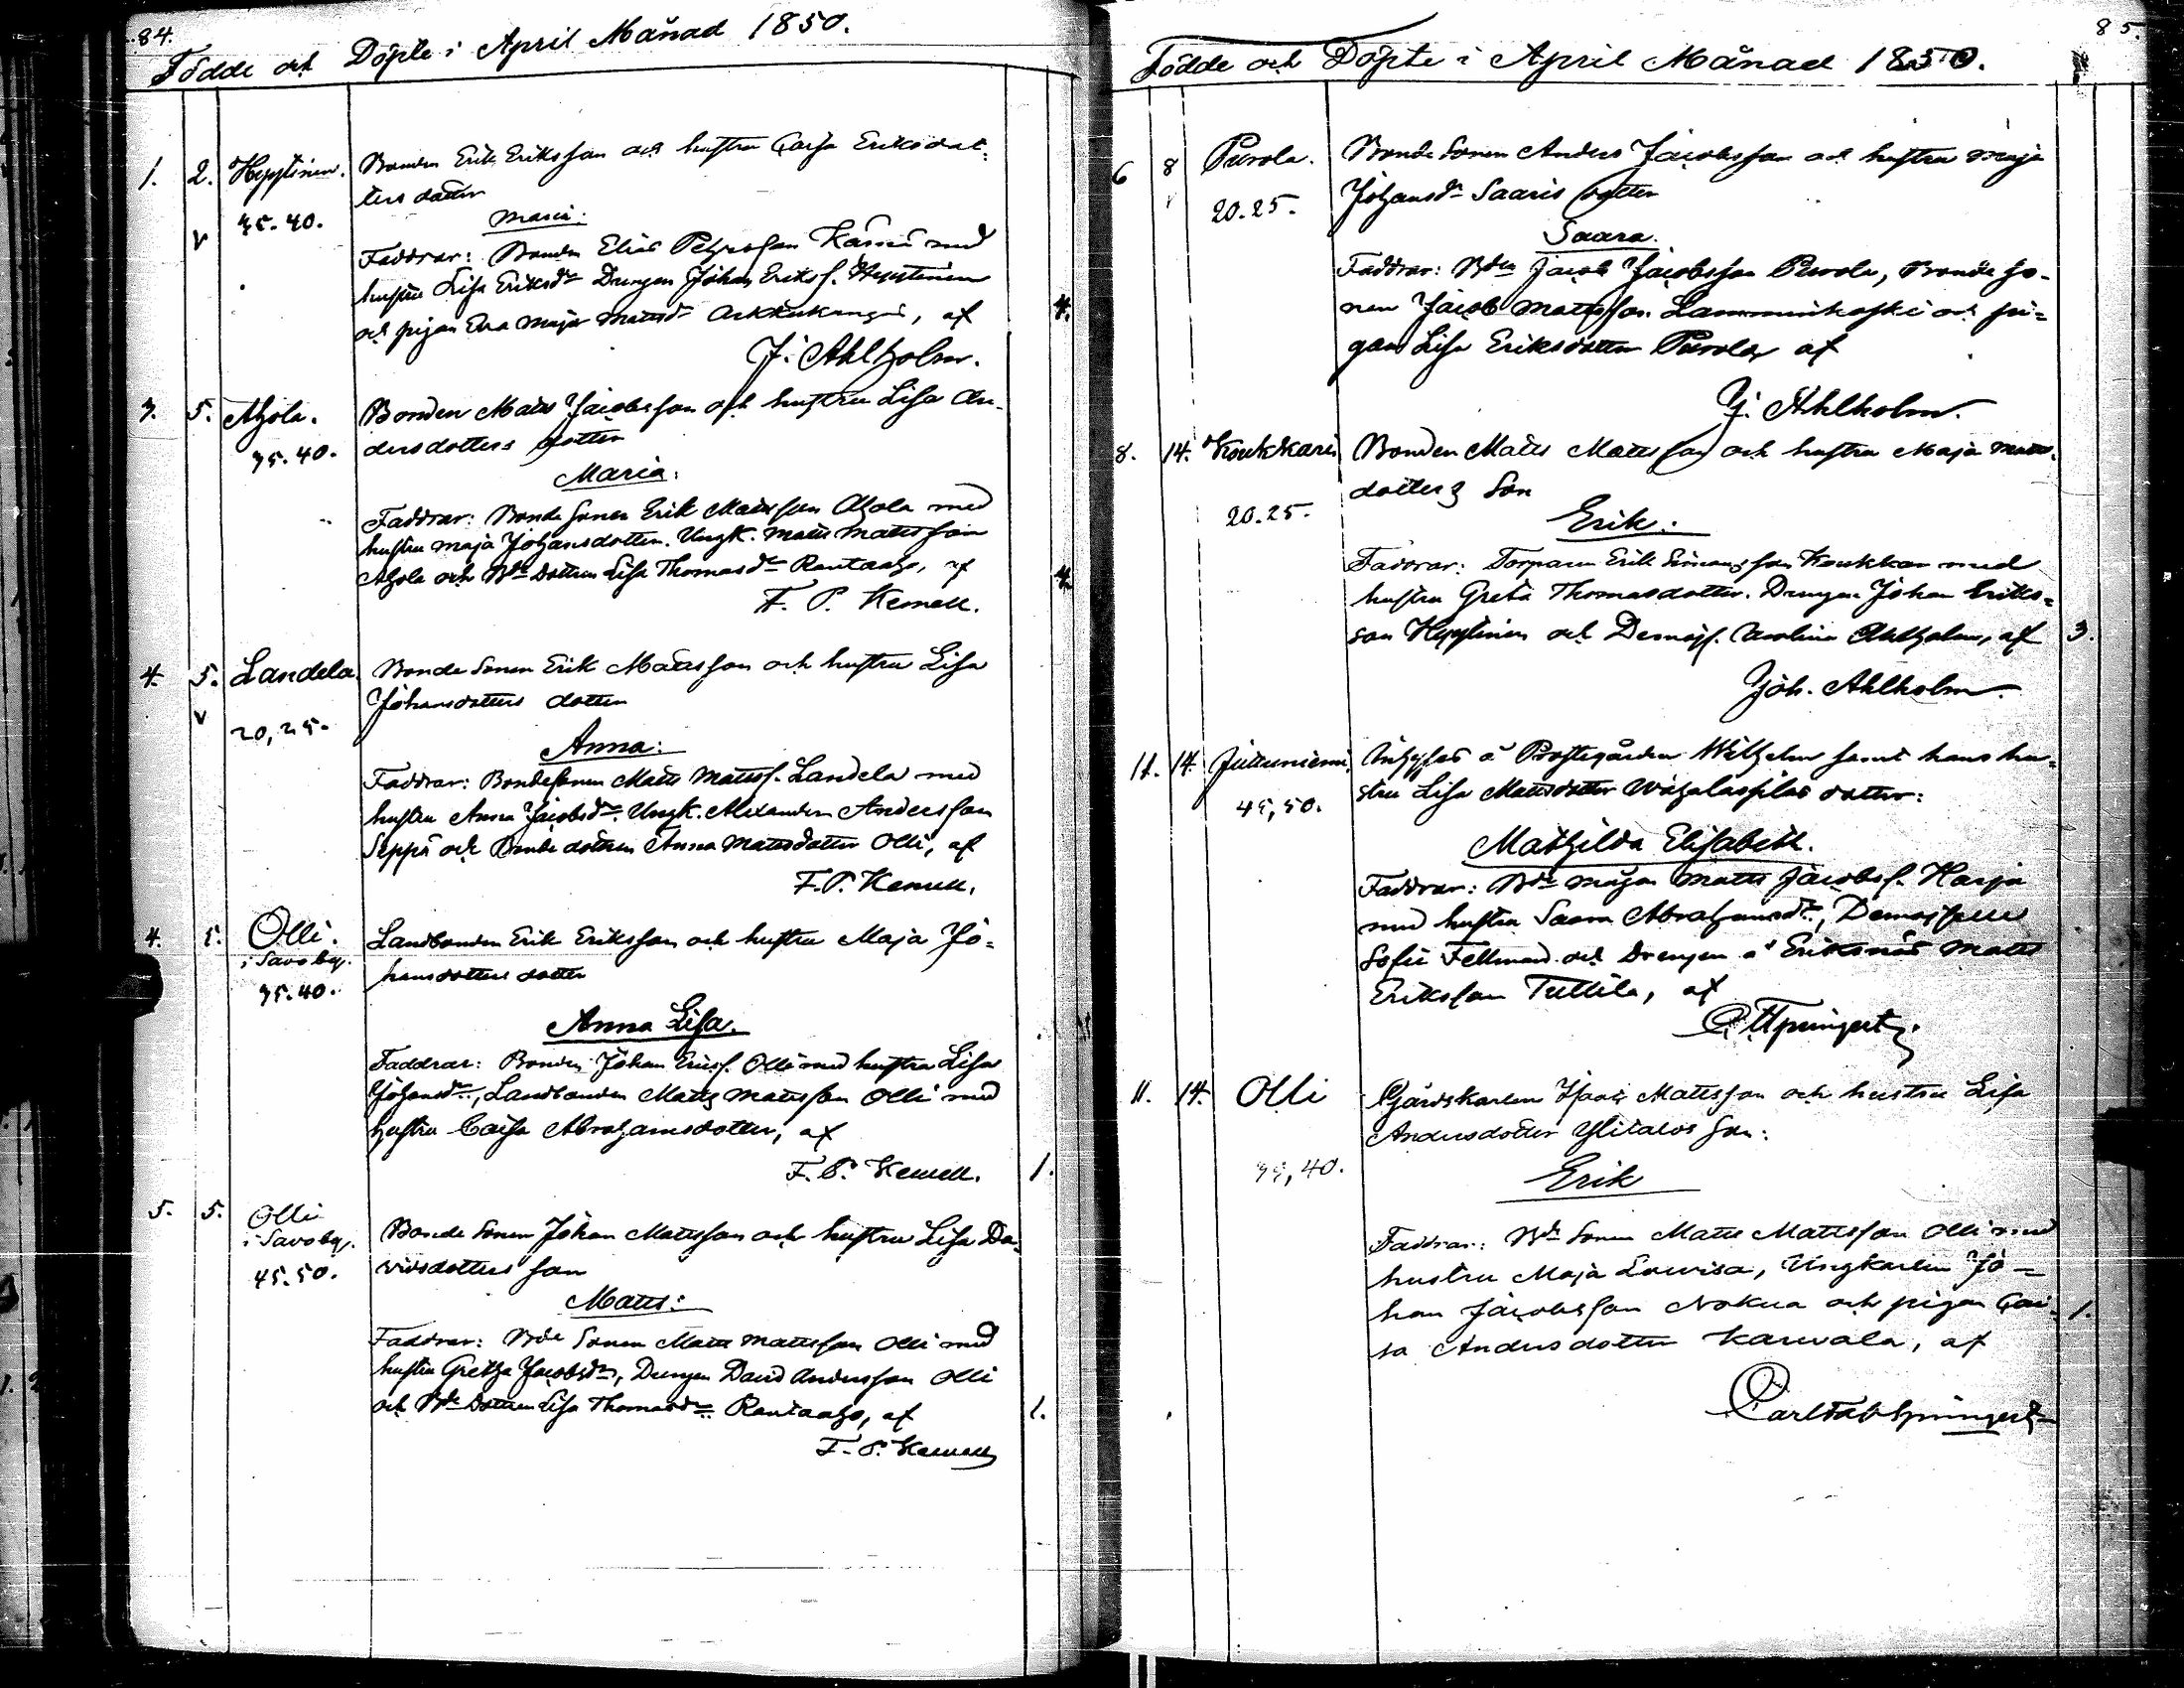 84.
Födde och Döpte i April Månad 1850.
1. 2. Hyytinen. Bonden Erik Eriksson och hustru Caisa Eriksdot-
ters dotter
35. 40.
Maria:
Faddrar: Bonden Elias Petersson med
hustru Lisa Eriksdr Drengen Johan Erikss. Hyytinen
och pigan Eva Maja Mattsdr, af
4.
J. Ahlholm.
3. 5. Ahola. Bonden Matts Jacobsson och hustru Lisa An-
35. 40. dersdotters dotter
Maria:
Faddrar: Bonde Sonen Erik Mattsson Ahola med
hustru Maja Johansdotter. Ungk. Matts Mattsson
Ahola och Bde Dottren Lisa Thomasdr Rantaaho, af
4.
F. P. Kemell.
4. 5. Landela Bonde Sonen Erik Mattsson och hustru Lisa
Johansdotters dotter
20, 25.
Anna:
Faddrar: Bondesonen Matts Mattss. Landela med
hustru Anna Jacobsdr. Ungk. Alexander Andersson
Seppä och Bonde dottren Anna Mattsdotter Olli, af
F. P. Kemell.
4. 5. Olli. Landbonden Erik Eriksson och hustru Maja Jo-
i Savoby.
35. 40. hansdotters dotter
Anna Lisa.
Faddrar: Bonden Johan Erikss. Olli med hustru Lisa
Johansdr, Landbonden Matts Mattsson Olli med
hustru Caisa Abrahamsdotter, af
F. P. Kemell. 1.
5. 5. Olli
i Savoby. Bonde Sonen Johan Mattsson och hustru Lisa Da-
45. 50. vidsdotters son
Matts:
Faddrar: Bde Sonen Matts Mattsson Olli med
hustru Gretha Jacobsdr, Drengen David Andersson Olli
och Bde Dottren Lisa Thomasdr Rantaaho, af 1.
F. P. Kemell
85.
Födde och Döpte i April Månad 1850.
6 8 Purola. Bonde Sonen Anders Jacobsson och hustru Maja
20. 25. Johansdr Saaris dotter
Saara.
Faddrar: Bden Jacob Jacobsson Purola, Bonde so-
nen Jacob Mattsson Lamminkoski och pi-
gan Lisa Eriksdotter Purola af
J. Ahlholm.
8. 14. Koukkari Bonden Matts Mattsson och hustru Maja Matts-
dotters Son
20. 25.
Erik:
Faddrar: Torparen Erik Simonsson Koukkari med
hustru Greta Thomasdotter. Drengen Johan Eriks-
son Hyytinen och Demojs. Carolina Ahlholm, af 3.
Joh. Ahlholm.
11. 14. Juttuniemi. Inhyses å Prostegården Wilhelm samt hans hu-
45, 50. stru Lisa Mattsdotter dotter:
Mathilda Elisabeth.
Faddrar: Bde mågen Matts Jacobss. Harju
med hustru Saara Abrahamsdr, Demojselle
Sofie Fellman och Drengen å Eriksnäs Matts
Eriksson Tuttila, af
11. 14. Olli Gårdskarlen Isaac Mattsson och hustru Lisa
Andersdotter Ylitalos son:
35, 40.
Erik
Faddrar: Bde Sonen Matts Mattsson Olli med
hustru Maja Lovisa, Ungkarlen Jo-
han Jacobsson Nokua och pigan Cai- 1.
sa Andersdotter Karvala, af